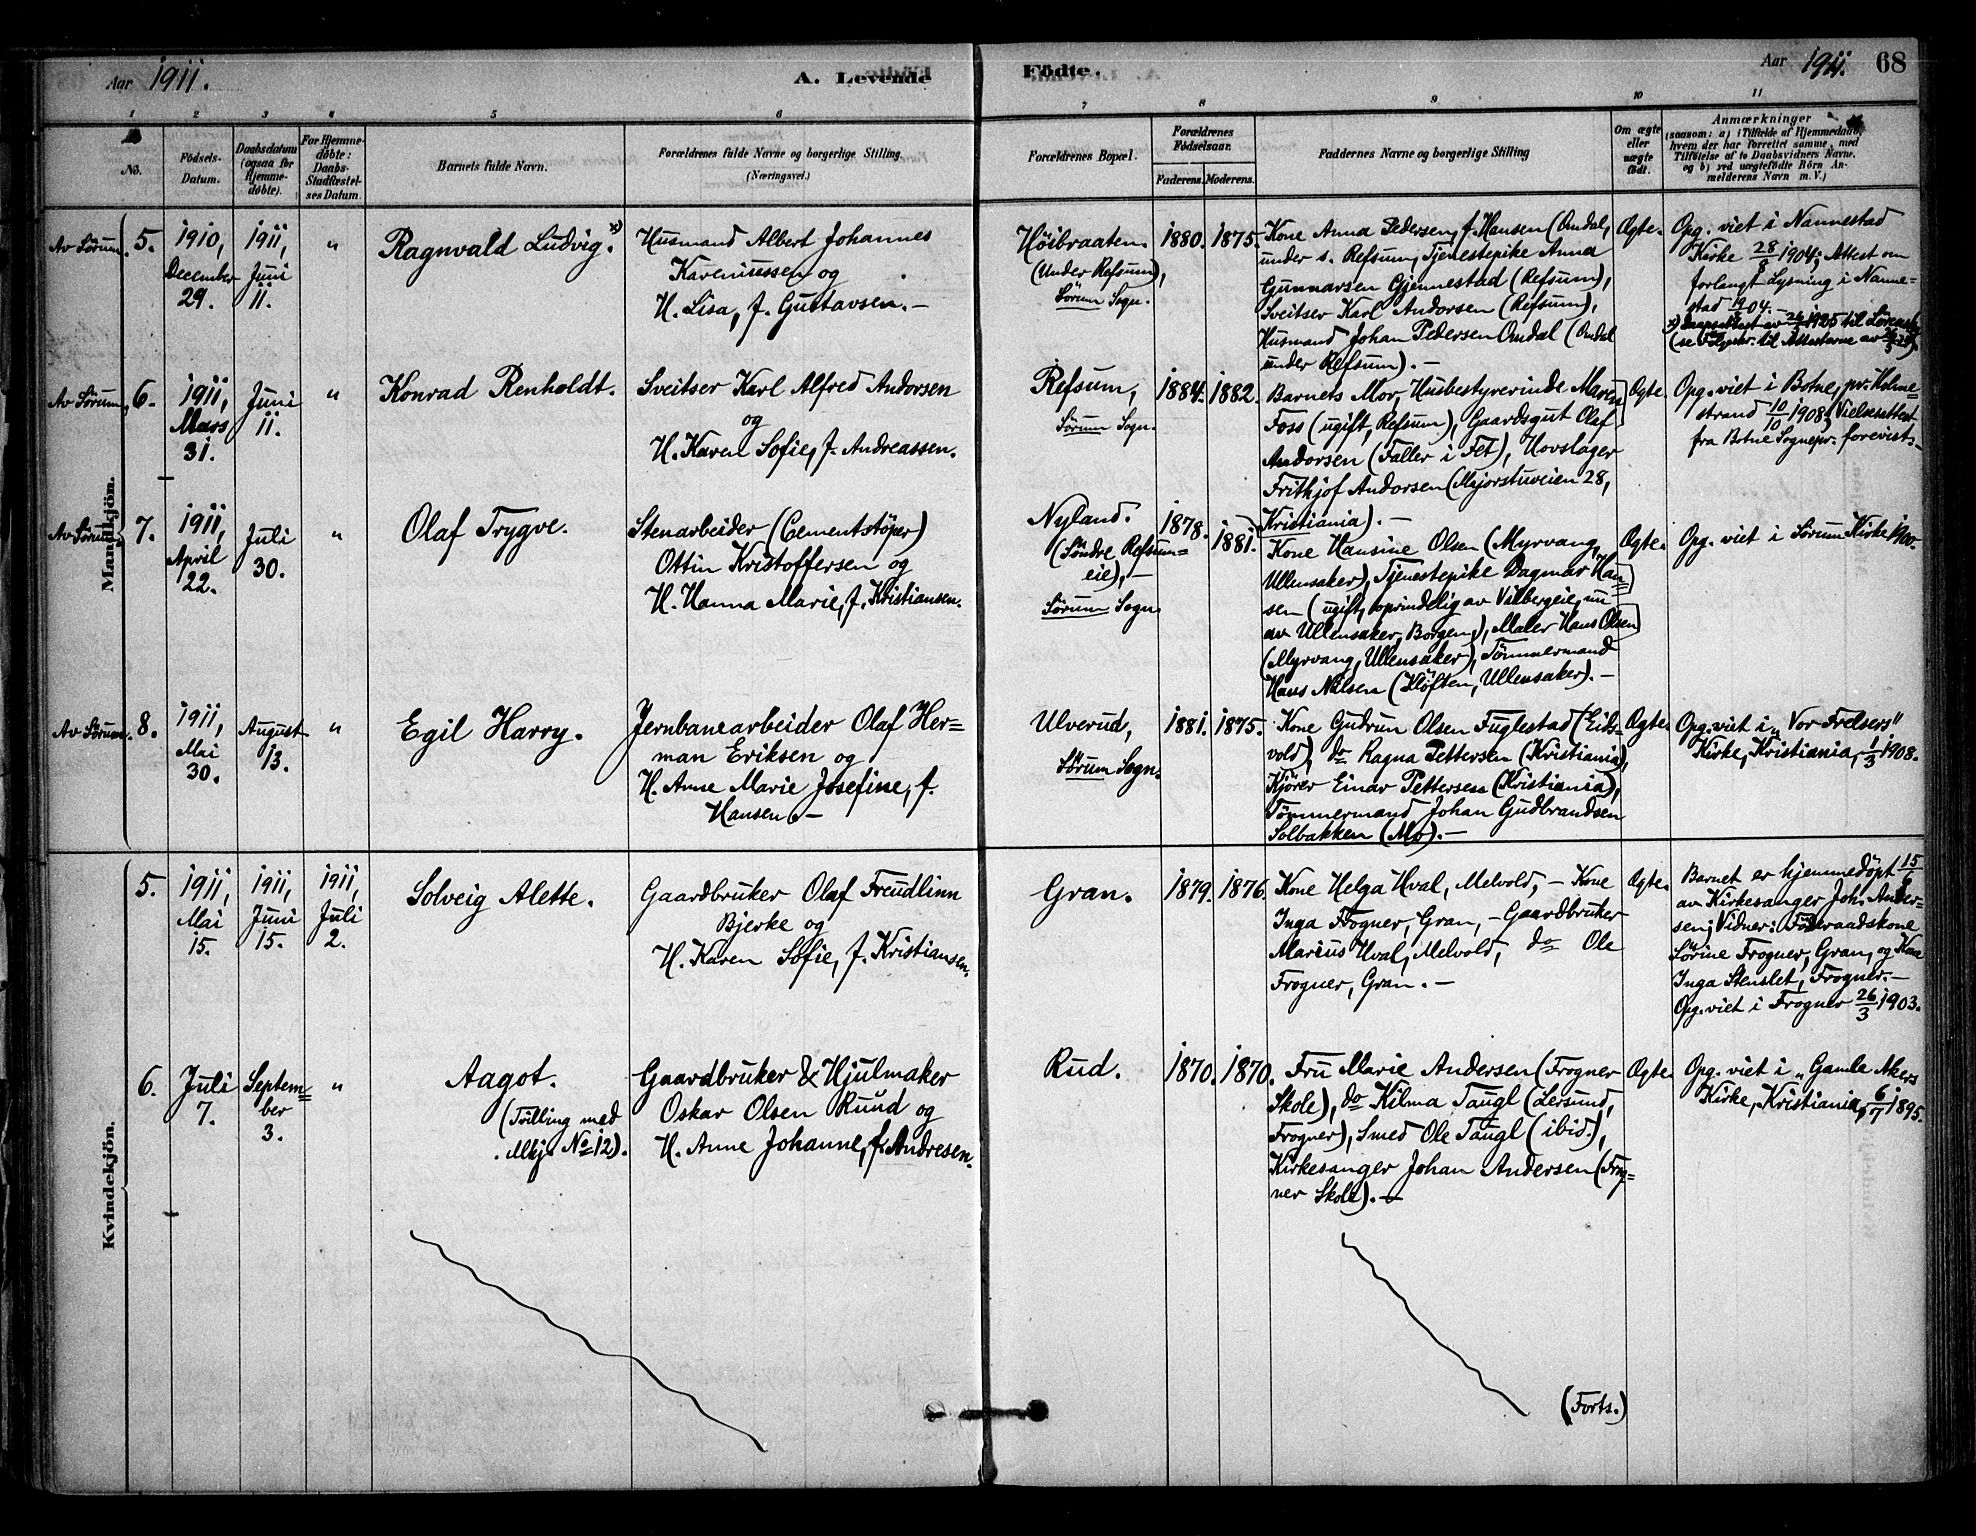 Aar 1911.
A. Levende
Födte.
Aar 1911.
68
1
2
3
4
5
6
7
8
9
10
11
No.
Födsels-
Datum.
Daabsdatum
(ogsaa for
Hjemme-
döbte).
For Hjemme-
döbte:
Daabs-
Stadfæstel-
ses Datum.
Barnets fulde Navn.
Forældrenes fulde Navne og borgerlige Stilling.
(Næringsvei.)
Forældrenes Bopæl.
Forældrenes
Födselsaar.
Faderens.
Moderens.
Faddernes Navne og borgerlige Stilling
Om ægte
eller
uægte
födt.
Anmærkninger
(saasom: a) i Tilfælde af Hjemmedaab,
hvem der har forrettet samme, med
Tilföielse af to Daabsvidners Navne,
og b) ved uægtefödte Börn An-
melderens Navn m. V.)
Mandkjön.
Av Sörum.
5.
1910,
December
29.
1911,
Juni
11.
"
Ragnvald Ludvig. x)
Husmand Albert Johannes
Kareniussen og
H. Lisa, f. Gustavsen. —
Höibraaten
(Under Refsum),
Sörum Sogn.
1880.
1875.
Kone Anna Pedersen, f. Hansen (Omdal,
under s. Refsum, Tjenestepike Anna
Gunnarsen Gjennestad (Refsum),
Sveitser Karl Andorsen (Refsum),
Husmand Johan Pedersen Omdal (Omdal
under Refsum). —
Ægte.
Opg. viet i Nannestad
Kirke 28/8 1904; Attest om
forlangt Lysning i Nanne-
stad
Av Sörum.
6.
1911,
Mars
31.
Juni
11.
"
Konrad Renholdt.
Sveitser Karl Alfred Andorsen
og
H. Karen Sofie, f. Andreassen.
Refsum,
Sörum Sogn.
1884.
1882.
Barnets Mor, Husbestyrerinde Maren
Foss (ugift, Refsum), Gaardsgut Olaf
Andorsen (Faller i Fet), Hovslager
Frithjof Andorsen (Majorstuveien 28,
Kristiania). —
Ægte.
Opg. viet i Botne, pr. Holme-
strand 10/10 1908; Vielsesattest
fra Botne Sognepr. forevist.
Av Sörum.
7.
1911,
April
22.
Juli
30.
"
Olaf Trygve.
Stenarbeider (Cementstöper)
Ottin Kristoffersen og
H. Hanna Marie, f. Kristiansen.
Nyland.
(Söndre Refsum-
eie), —
Sörum Sogn.
1878.
1881.
Kone Hansine Olsen (Myrvang,
Ullensaker), Tjenestepike Dagmar Han-
sen (ugift, oprindelig av Vilbergeie, nu
av Ullensaker, Borgen), Maler Hans Olsen
(Myrvang, Ullensaker), Tömmermand
Hans Nilsen (Klöften, Ullensaker). —
Ægte.
Opg. viet i Sörum Kirke 1900.
Av Sörum.
8.
1911,
Mai
30.
August
13.
"
Egil Harry.
Jernbanearbeider Olaf Her-
man Eriksen og
H. Anne Marie Josefine, f.
Hansen. —
Ulverud,
Sörum Sogn.
1881.
1875.
Kone Gudrun Olsen Fuglestad (Eids-
vold), do Ragna Pettersen (Kristiania),
Kjörer Einar Pettersen (Kristiania),
Tömmermand Johan Gudbrandsen
Solbakken (Mo). —
Ægte.
Opg. viet i „Vor Frelsers"
Kirke, Kristiania, 1/3 1908.
Kvindekjön.
5.
1911,
Mai
15.
1911,
Juni
15.
1911,
Juli
2.
Solveig Alette.
Gaardbruker Olaf Freudlinn
Bjerke og
H. Karen Sofie, f. Kristiansen.
Gran.
1879.
1876.
Kone Helga Hval, Melvold, — Kone
Inga Frogner, Gran, — Gaardbruker
Marius Hval, Melvold, do Ole
Frogner, Gran. —
Ægte.
Barnet er hjemmedöpt 15/6
av Kirkesanger Joh. Ander-
sen; Vidner: Föderaadskone
Sörine Frogner, Gran, og Kone
Inga Stenslet, Frogner. —
Opg. viet i Frogner 26/3 1903.
6.
Juli
7.
Septem-
ber
3.
"
Aagot.
(Tvilling med
Mkj. No 12).
Gaardbruker & Hjulmaker
Oskar Olsen Ruud og
H. Anne Johanne, f. Andresen.
Rud.
1870.
1870.
Fru Marie Andersen (Frogner
Skole), do Kilma Taugl (Lersund,
Frogner), Smed Ole Taugl (ibid.),
Kirkesanger Johan Andersen (Frog-
ner Skole). —
Ægte.
Opg. viet i „Gamle Akers
Kirke, Kristiania, 6/7 1895.
(Forts.)